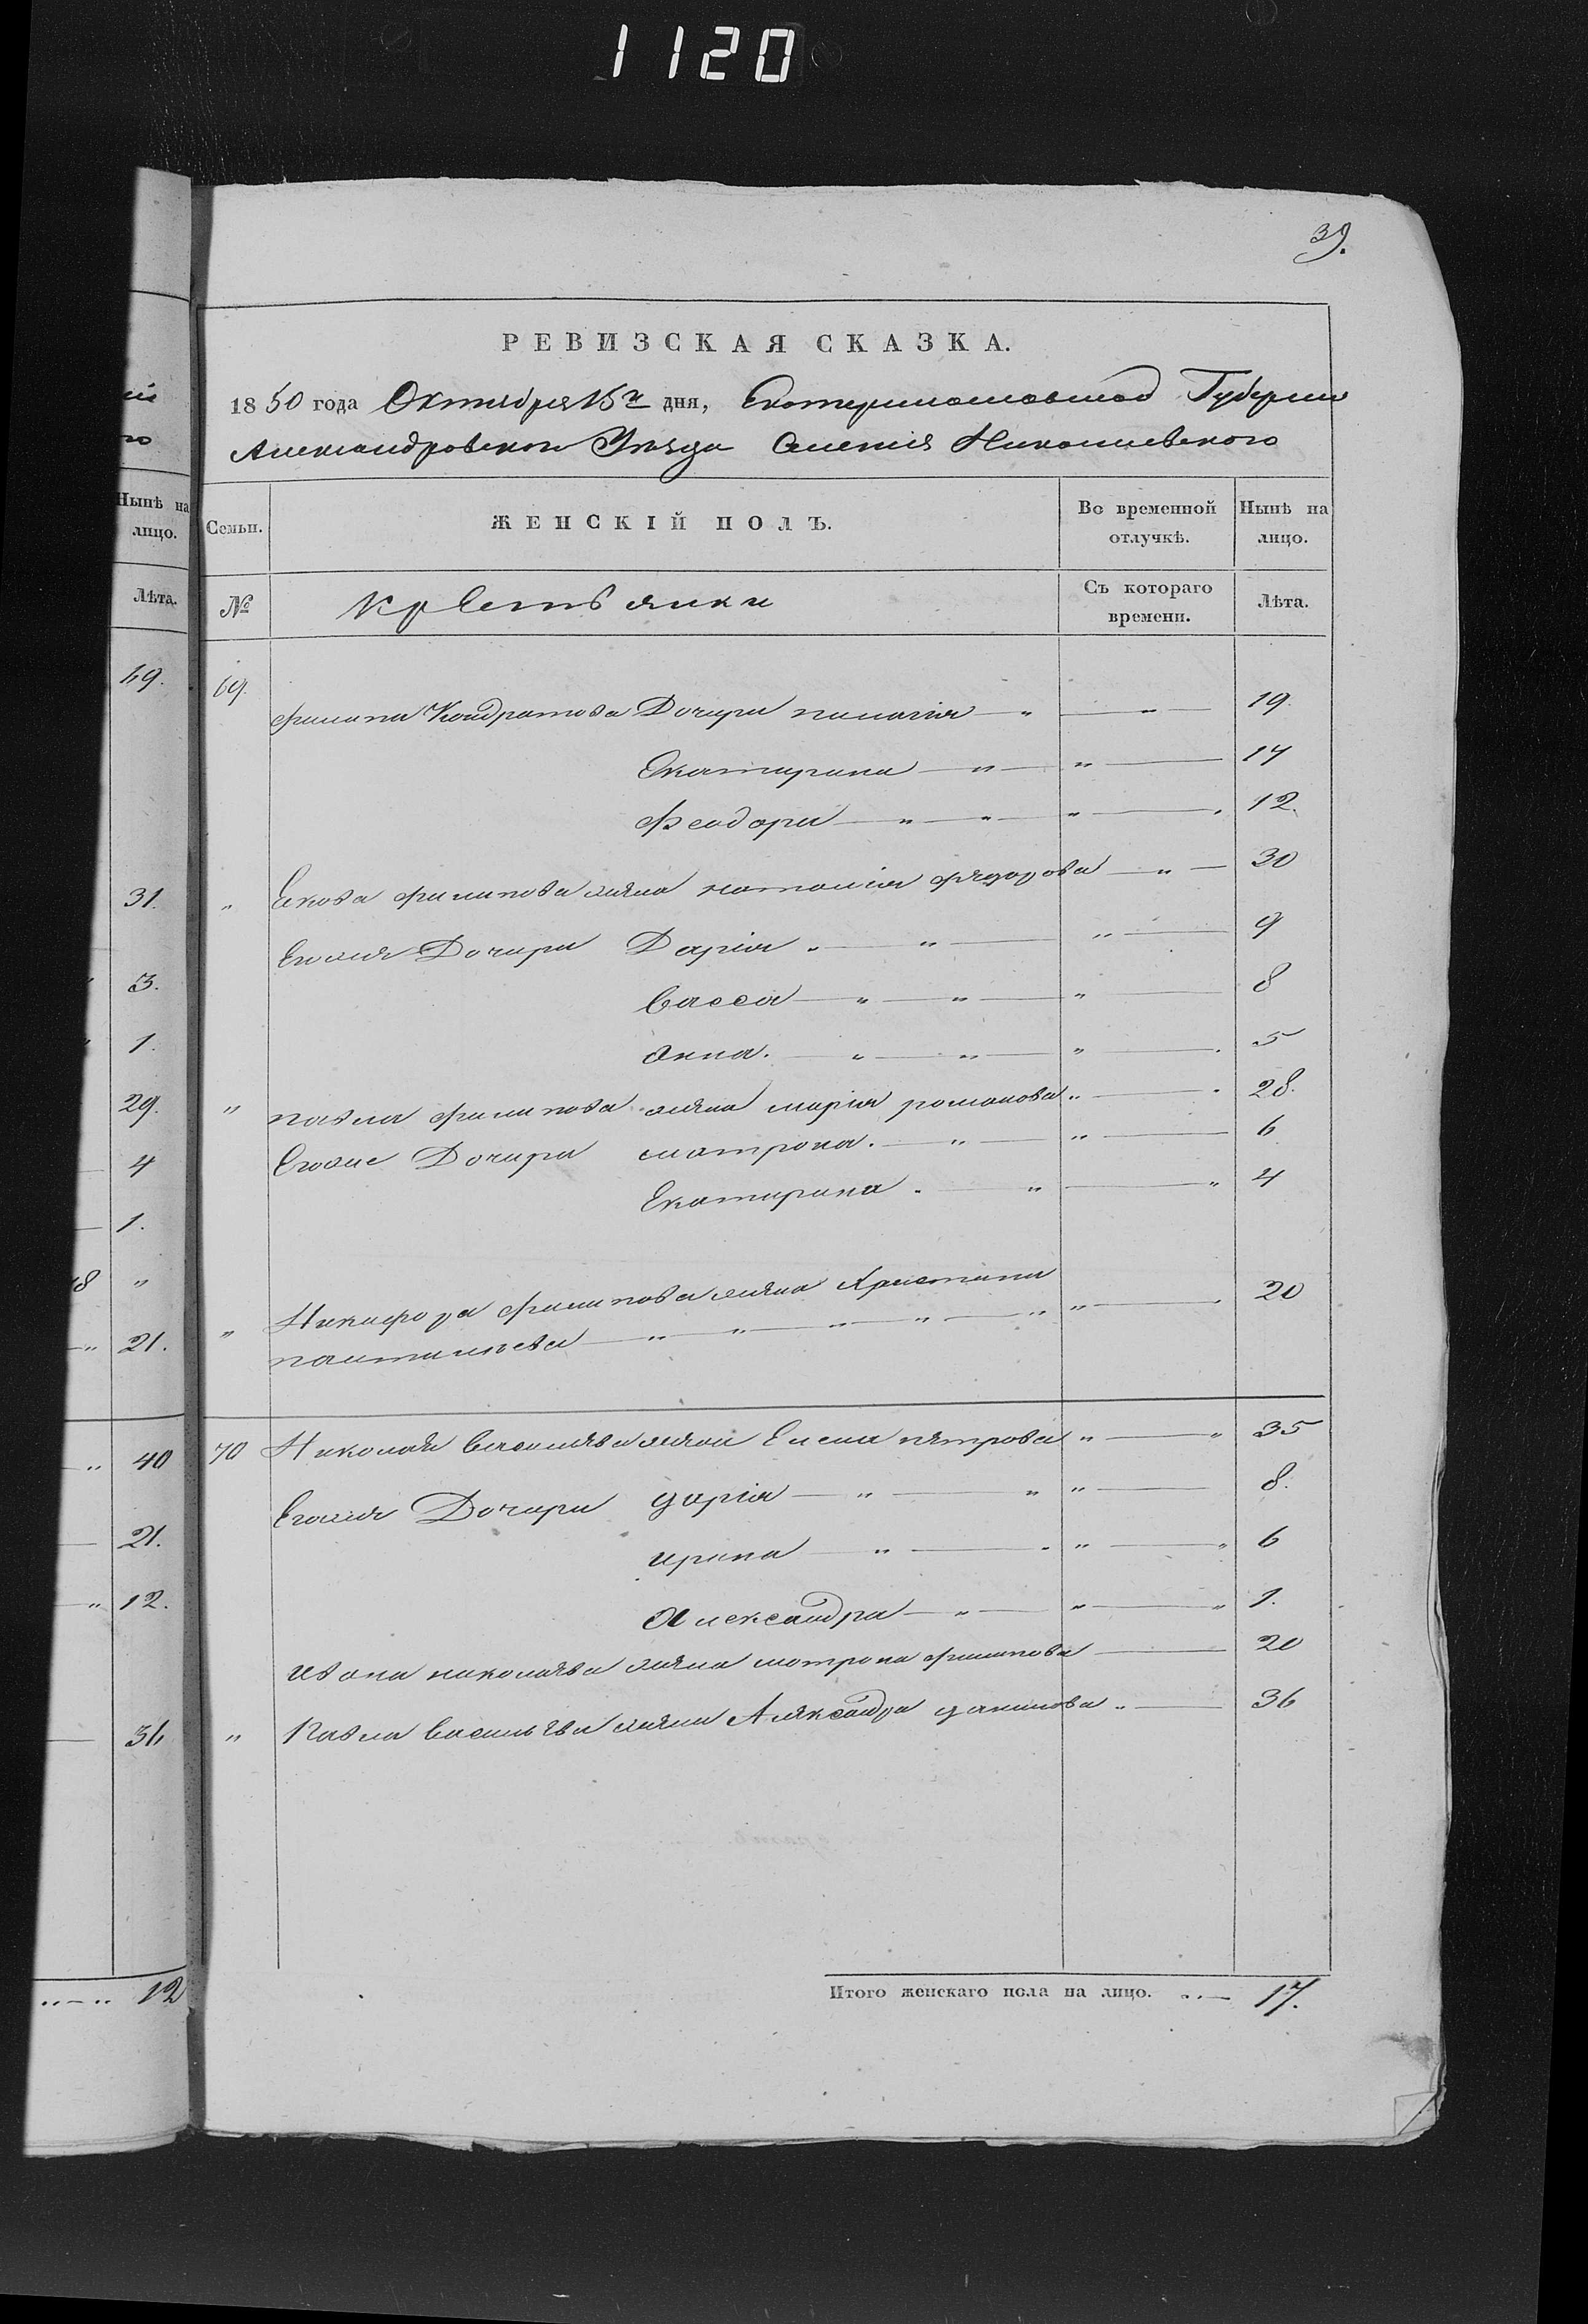 1120
39.
РЕВИЗСКАЯ СКАЗКА.
1850 года Октября 15го дня, Екатеринославской Губернии
Александровского Уѣзда Селенія Николаевского
Нынѣ на лицо.
Лѣта.
Семьи. ЖЕНСКІЙ ПОЛЪ. Во временной отлучкѣ. Нынѣ на лицо.
№ Крестьянки Съ котораго времени. Лѣта.
49. 69 Филипа Кондратова Дочери пилагия — " — " — 19.
Екатирина — " — " — 14
Феодора — " — " — " — 12.
31. " Якова филипова жена наталия фядорова — " — 30
Евожя Дочири Дария " — " — " — 9
3. Васса — " — " — " — 8
1. Анна. — " — " — " — 5
29. " павла филипова жена мария романова " — 28.
4 Евоже Дочири матрона. — " — " — 6
1. Екатирина . — " — " 4
18 "
21. " Никифора филипова жена Христина " — 20
пантилѣева — " — " — " — " — "
40 70 Николая Василява жена Елена пятрова " — " 35
21. Евожя Дочири дария — " — " " — 8.
12. ирина — " — " — " 6
Александра — " — " — " 1.
Ивана николаява жена мотрона филипова — 20
36 " Павла Василява жена Аляксандра данилова " — 36
12 Итого женскаго пола на лицо. " — 17.